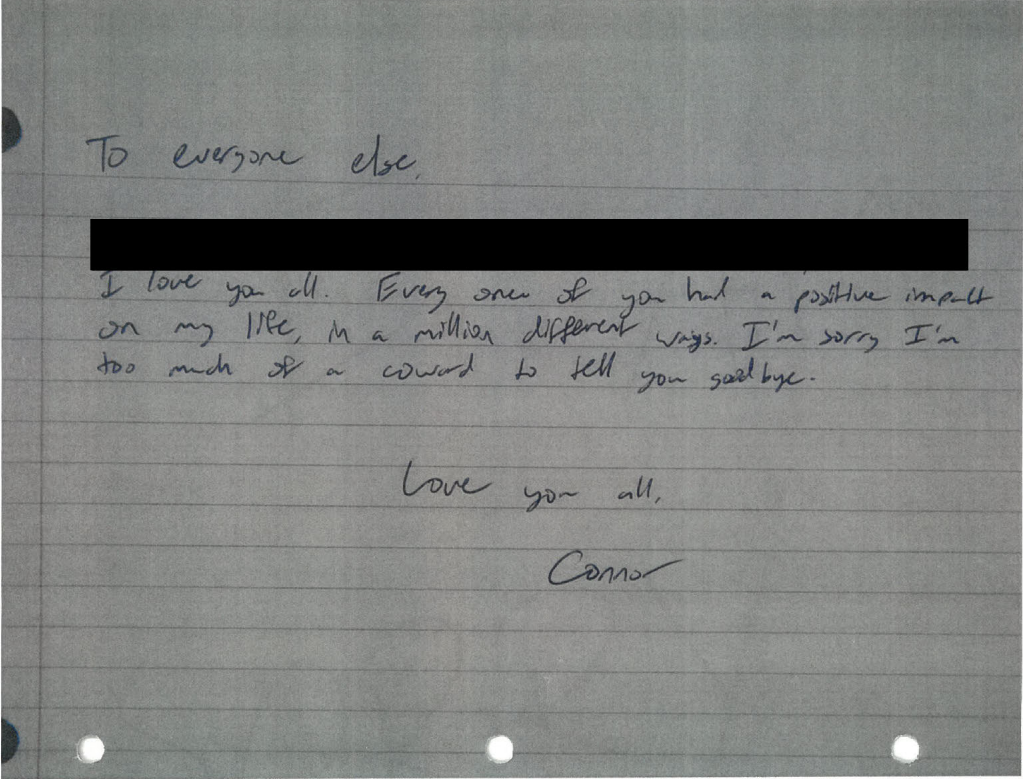 To everyone else,
I love you all. Every one of you had a positive impact
on my life, in a million different ways. I'm sorry I'm
too much of a coward to tell you goodbye.
Love you all,
Connor